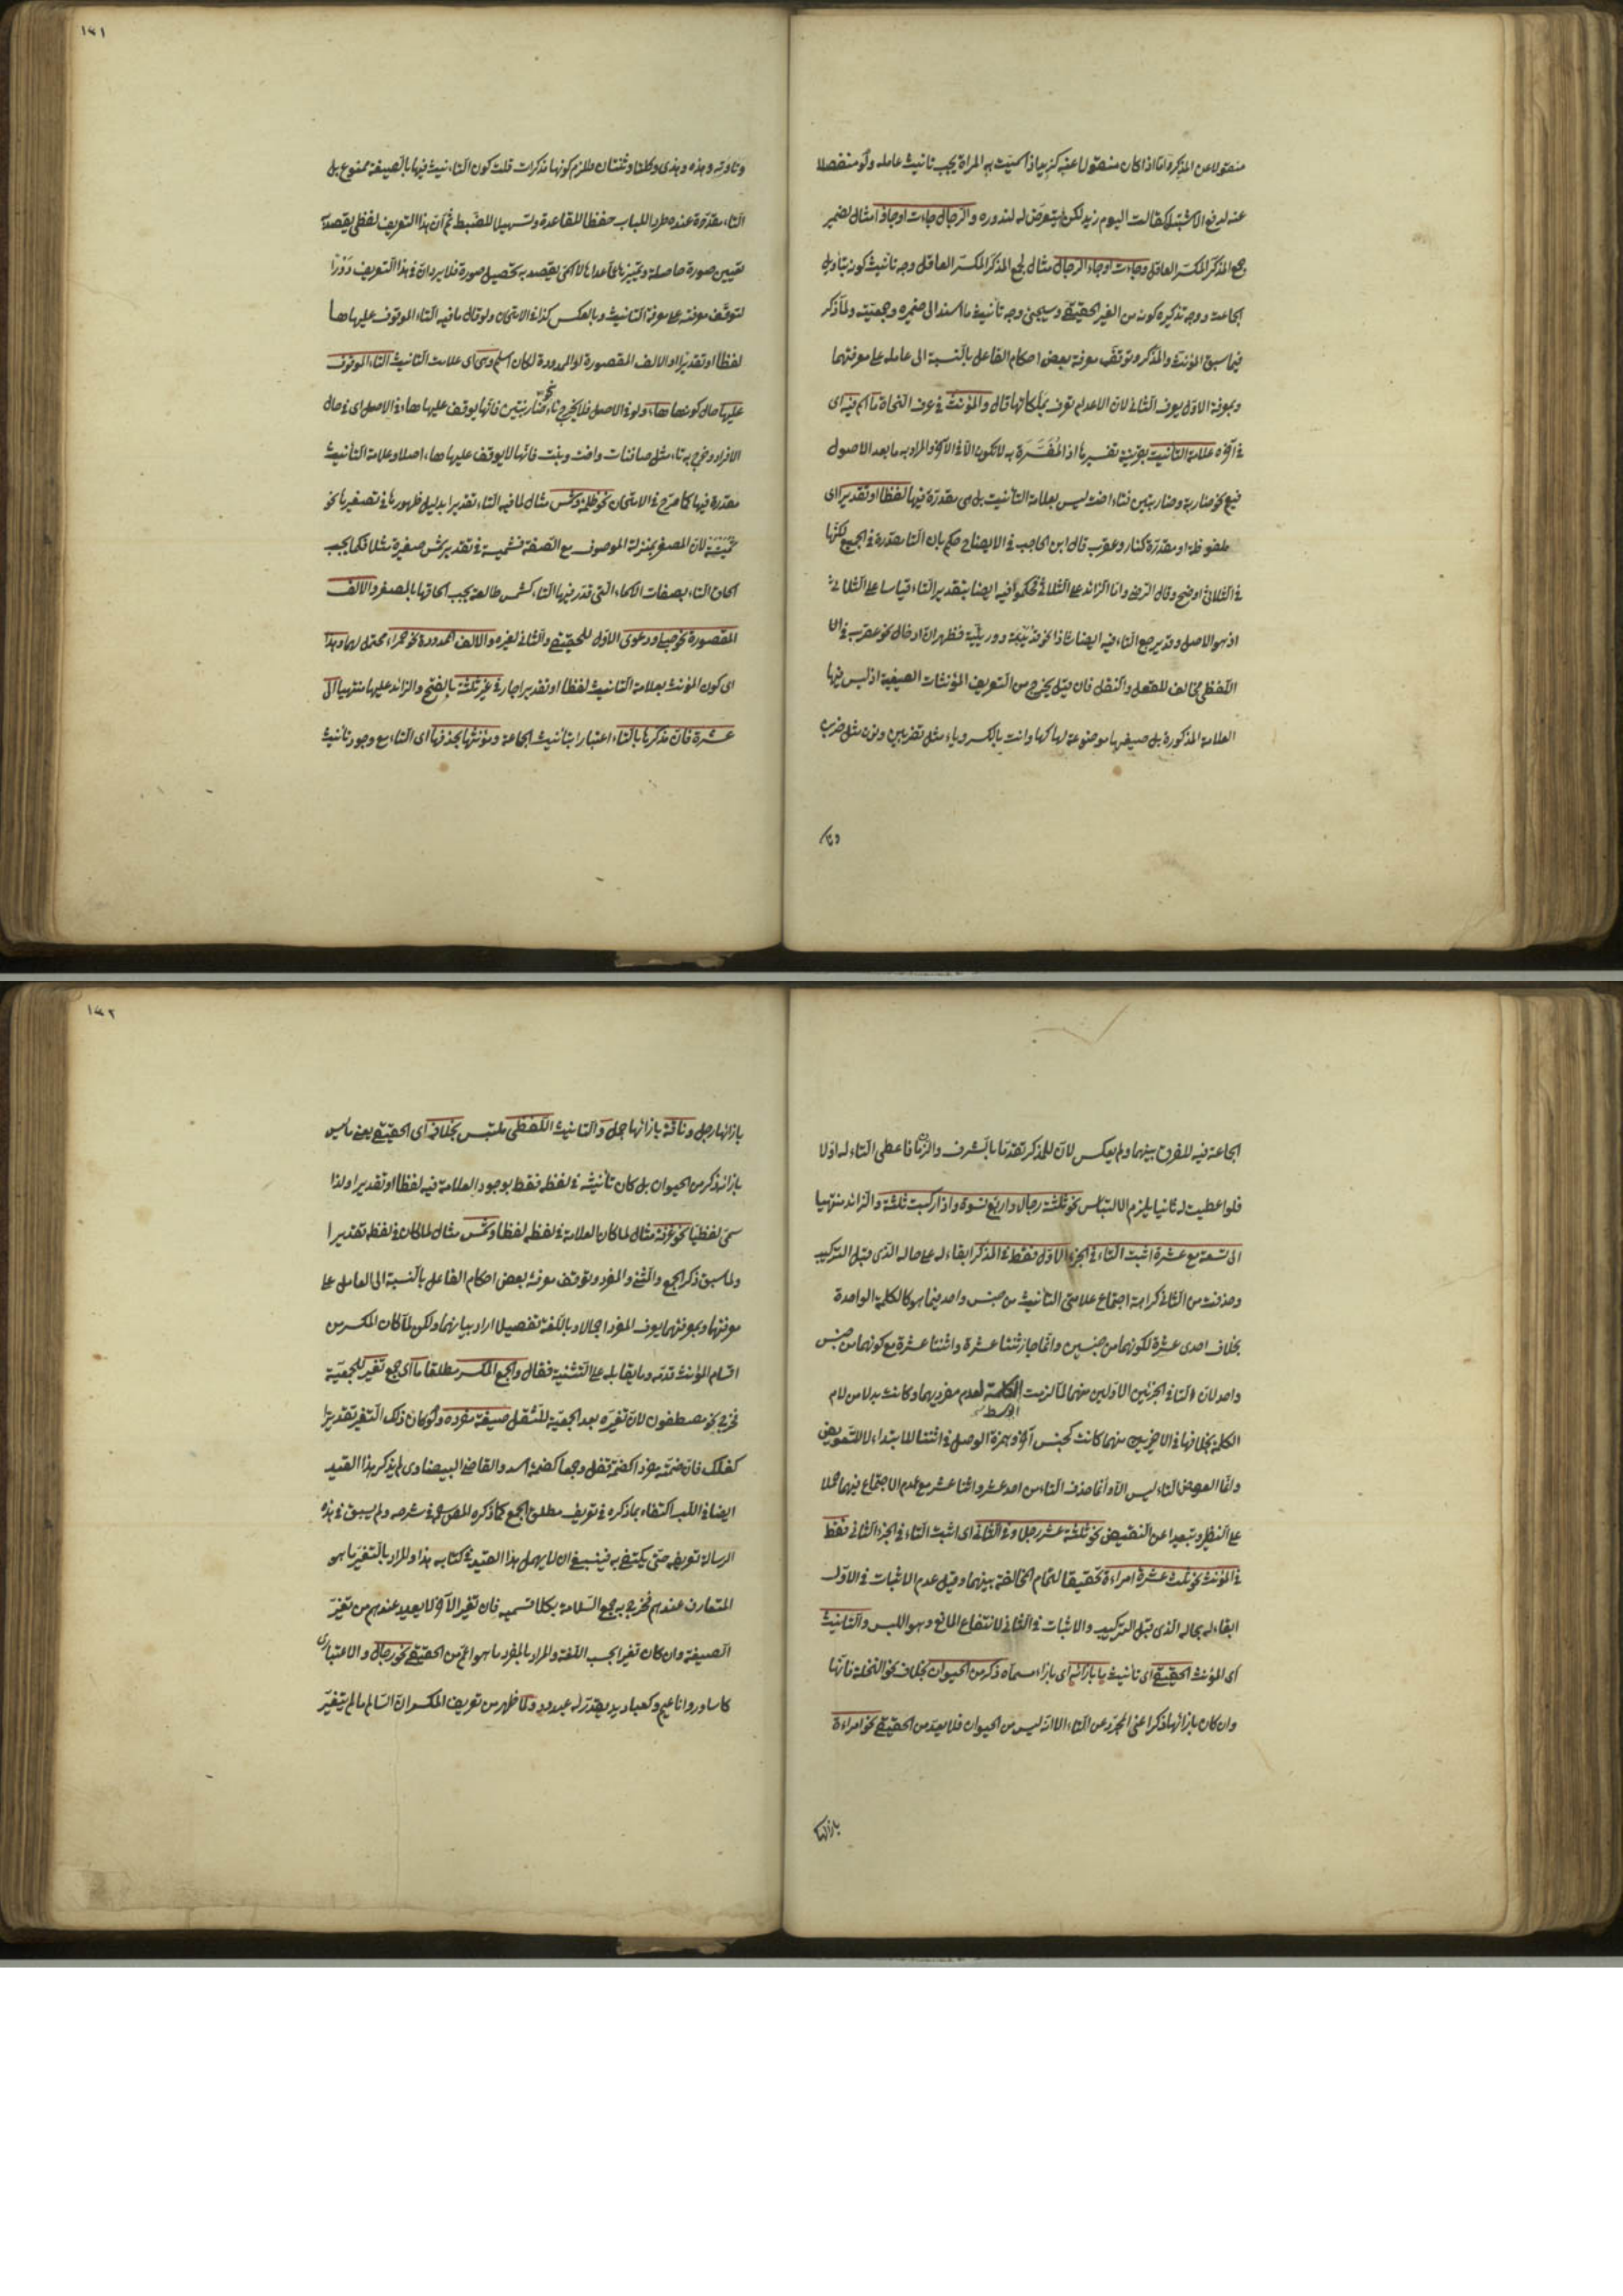 منقولا عن المذكر واما اذا كان منقولا عنه كزيد اذا سميت به المراة يجب تانيث عامله ولو منفصلا
عنه لدفع الاشتباه كقالت اليوم زيد لكن لم يتعرض له لندوره والرجال جاءت او جاؤا مثال لضمير
جمع المذكر المكسر العاقل وجاءت او جاء الرجال مثال لجمع المذكر المكسر العاقل وجه تانيثه كونه بتاويل
الجماعة ووجه تذكيره كونه من الغير الحقيقي وسيجئ وجه تانيث ما اسند الى ضميره وجمعيته ولما ذكر
فيما سبق المؤنث والمذكر وتوقف معرفة بعض احكام الفاعل بالنسبة الى عامله على معرفتهما
وبمعرفة الاول يعرف الثاني لان الاعدام تعرف بملكاتها قال والمؤنث في عرف النحاة ما اسم فيه اى
في آخره علامة التانيث بقرينة تفسيرها اذ المفسرة به لا تكون الا في الآخر والمراد به ما بعد الاصول
فيع نحو ضاربة وضاربتين فتاء اخت ليس بعلامة التانيث بل هى مقدرة فيها لفظا او تقديرا اى
ملفوظة او مقدرة كنار وعقرب قال ابن الحاجب في الايضاح حكم بان التا مقدرة في الجميع لكنها
في الثلاثى اوضح وقال الرضى واما الزائد على الثلاثى فحكموا فيه ايضا بتقدير التاء قياسا على الثلاثى
اذ هو الاصل وقد يرجع التاء فيه ايضا شاذا نحو قديديمة ووريئة فظهر ان ادخال نحو عقرب في ال
اللفظى مخالف للعقل والنقل فان قيل يخرج من التعريف المؤنثات الصيغية اذ ليس فيها
العلامة المذكورة بل صيغها موضوعة لها كها وانت بالكسر وياء مثل تضربين ونون مثل ضربن
وتا
١٤١
وتا وته وهذه وهذى وكلتا وثنتان فلزم كونها مذكرات قلت كون التانيث فيها بالصيغة ممنوع بل
التاء مقدرة عنده طردا للباب حفظا للقاعدة وتسهيلا للضبط ثم ان هذا التعريف لفظى يقصد به
تعيين صورة حاصلة وتمييزها عما عداها لا اسمى يقصد به تحصيل صورة فلا يرد ان في هذا التعريف دورا
لتوقف معرفته على معرفة التانيث وبالعكس كذا في الامتحان ولو قال ما فيه التاء الموقوف عليها ها
لفظا او تقديرا او الالف المقصورة او الممدودة لكان اسلم وهى اى علامة التانيث التاء الموقوف
عليها حال كونها هاء ولو في الاصل فلا يخرج تاء نحو ضاربتين فانها يوقف عليها هاء في الاصل اى في حال
الافراد وخرج به تاء مثل صائنات واخت وبنت فانها لا يوقف عليها هاء اصلا وعلامة التانيث
مقدرة فيها كما صرح في الامتحان نحو ظلمة وشمس مثال لما فيه التاء تقديرا بدليل ظهورها في تصغيرها نحو
شميسة لان المصغر بمنزلة الموصوف مع الصفة فشميسة في تقدير شمس صغيرة مثلا فكما يجب
الحاق التاء بصفات الاسماء التى قدر فيها التاء كشمس طالعة يجب الحاقها بالمصغر والالف
المقصورة نحو حبلى ودعوى الاول للحقيقى والثانى لغيره والالف الممدودة نحو حمراء محتمل لهما وهذا
اى كون المؤنث بعلامة التانيث لفظا او تقديرا جار في غير ثلثة بالفتح والزائد عليها منتهيا الى
عشرة فان مذكرها بالتاء اعتبارا بتانيث الجماعة ومؤنثها بحذفها اى التاء مع وجود تانيث
الجماعة فيه للفرق بينهما ولم يعكس لان للمذكر تقدما بالشرف والزمان فاعطى التاء له اولا
فلو اعطيت له ثانيا يلزم الالتباس نحو ثلثة رجال واربع نسوة واذا ركبت ثلثة والزائد منتهيا
الى تسعة مع عشرة اثبت التاء في الجزء الاول فقط في المذكر ابقاء له على حاله الذى قبل التركيب
وحذفت من الثانى كراهة اجتماع علامتى التانيث من جنس واحد فيما هو كالكلمة الواحدة
بخلاف احدى عشرة لكونهما من جنسين وانما جاز ثنتا عشرة واثنتا عشرة مع كونهما من جنس
واحد لان التاء في الجزئين الاولين منهما لما لزمت الكلمة لعدم مفرديهما وكانت بدلا من لام
الوسط
الكلمة بخلافها في الاخيرين منهما كانت كجنس آخر وهمزة الوصل في اثنتا للابتداء لا للتعويض
وانما العوض التاء ليس الا وانما حذف التاء من احد عشر واثنا عشر مع عدم الاجتماع فيهما حملا
على النظير وتبعيدا عن النقيض نحو ثلثة عشر رجلا وفى الثانى اى اثبت التاء في الجزء الثانى فقط
في المؤنث نحو ثلث عشرة امراءة تحقيقا لتمام المخالفة بينهما وقيل عدم الاثبات في الاول
ابقاء له بحاله الذى قبل التركيب والاثبات في الثانى لانتفاء المانع وهو اللبس والتانيث
اى المؤنث الحقيقى اى تانيث ما بازائه اى بازاء مسماه ذكر من الحيوان بخلاف نحو النخلة فانها
وان كان بازائها ذكر اعنى المجرد عن التاء الا انه ليس من الحيوان فلا يعد من الحقيقى نحو امراءة
بازائها
١٤٢
بازائها رجل وناقة بازائها جمل والتانيث اللفظى ملتبس بخلافه اى الحقيقى يعنى ما ليس
بازائه ذكر من الحيوان بل كان تأنيثه في لفظه فقط بوجود العلامة فيه لفظا او تقديرا ولذا
سمى لفظيا نحو غرفة مثال لما كان العلامة في لفظه لفظا وشمس مثال لما كان في لفظه تقديرا
ولما سبق ذكر الجمع والمثنى والمفرد وتوقف معرفة بعض احكام الفاعل بالنسبة الى العامل على
معرفتها وبمعرفتهما يعرف المفرد اجمالا وباللغة تفصيلا اراد بيانهما ولكن لما كان المكسر من
اقسام المؤنث قدمه وما يقابله على التثنية فقال والجمع المكسر مطلقا ما اى جمع تغير للجمعية
فخرج نحو مصطفون لان تغيره بعد الجمعية للثقل صيغة مفرده ولو كان ذلك التغير تقديرا
كفلك فان ضمته مفردا كضمة قفل وجمعا كضمة اسد والقاضى البيضاوى لم يذكر هذا القيد
ايضا في اللب اكتفاء بما ذكره في تعريف مطلق الجمع كما ذكره المص في شرحه ولم يسبق في هذه
الرسالة تعريفه حتى يكتفى به فينبغى ان لا يهمل هذا القيد في كتابه هذا والمراد بالتغير ما هو
المتعارف عندهم فخرج به جمع السلامة بكلا قسميه فان تغير الآخر لا يعد عندهم من تغير
الصيغة وان كان تغيرا بحسب اللغة والمراد بالمفرد ما هو اعم من الحقيقى نحو رجال والاعتبارى
كاساور واناعيم وكعباديد يقدر له عبدود ولما ظهر من تعريف المكسر ان السالم ما لم يتغير